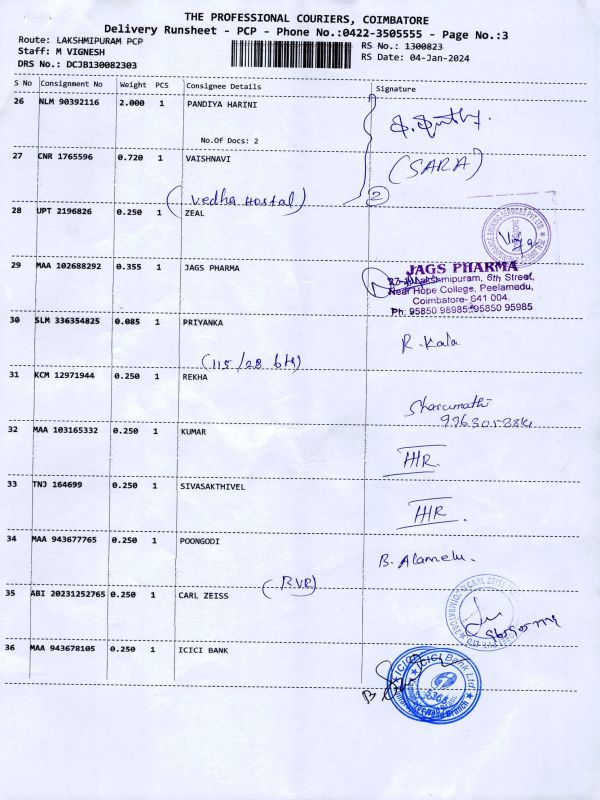 THE PROFESSIONAL COURIERS, COIMBATORE
Delivery Runsheet - PCP - Phone No.:0422-3505555 - Page No.:3
Route: LAKSHMIPURAM PCP
Staff: M VIGNESH
DRS No.: DCJB130082303
RS No.: 1300823
RS Date: 04-Jan-2024
S No Consignment No Weight PCS Consignee Details Signature
26 NLM 90392116 2.000 1 PANDIYA HARINI
No.Of Docs: 2
27 CNR 1765596 0.720 1 VAISHNAVI (SARA)
(Vedha Hostal) 2
28 UPT 2196826 0.250 1 ZEAL
29 MAA 102688292 0.355 1 JAGS PHARMA
JAGS PHARMA
Lakshmipuram, 6th Street,
Near Hope College, Peelamedu,
Coimbatore- 641 004.
Ph: 95850 98985, 95850 95985
30 SLM 336354825 0.085 1 PRIYANKA R. Kala
(115/28 bts)
31 KCM 12971944 0.250 1 REKHA Sharumathi
32 MAA 103165332 0.250 1 KUMAR H/R
33 TNJ 164699 0.250 1 SIVASAKTHIVEL H/R.
34 MAA 943677765 0.250 1 POONGODI B. Alamelu.
(B.V.P)
35 ABI 20231252765 0.250 1 CARL ZEISS
CARL ZEISS
36 MAA 943678105 0.250 1 ICICI BANK
ICICI Bank Ltd.